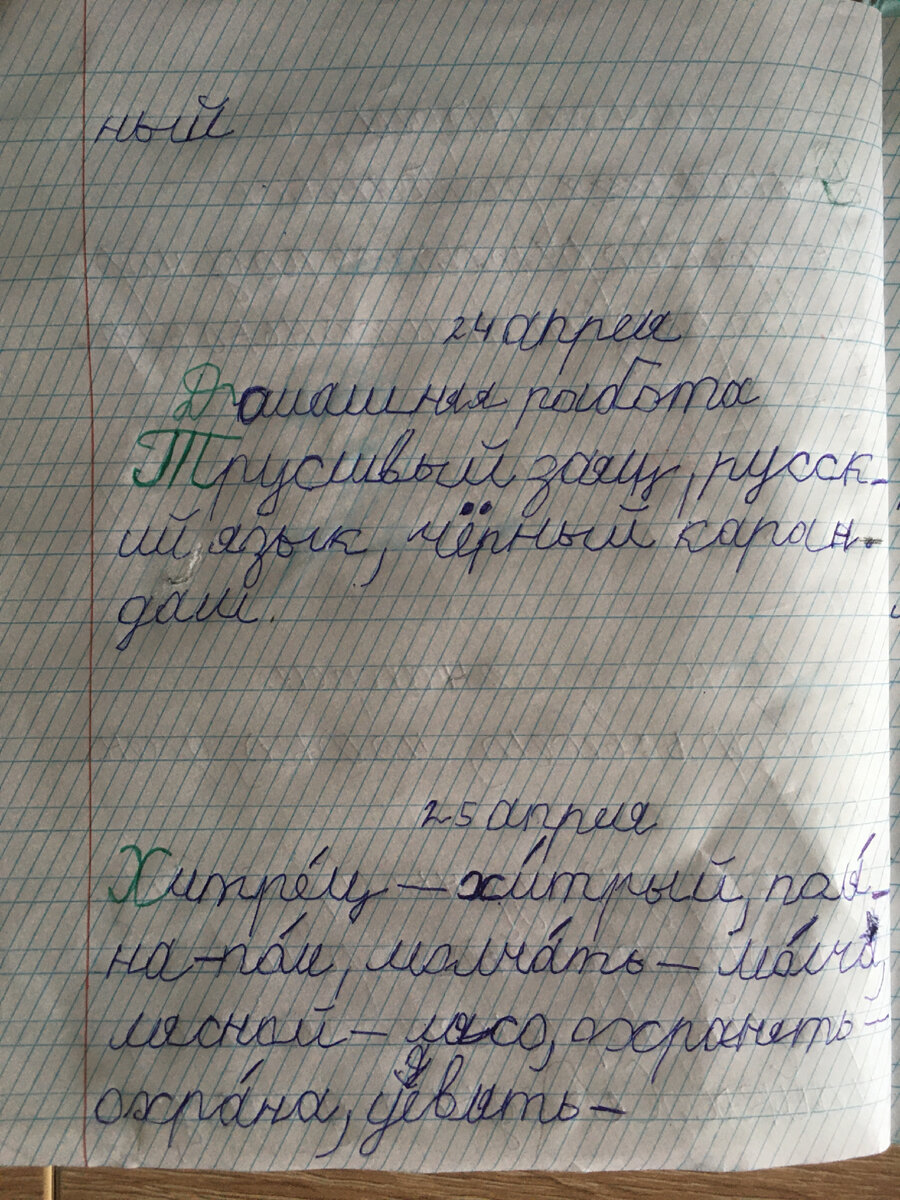 ный
24 апреля
Домашняя работа
Трусливый заяц, русск-
ий язык, чёрный каран-
даш.
25 апреля
Хитре́ц – хи́трый, поля́-
на – по́ле, молча́ть – мо́лча,
мясной – мясо, охранять –
охра́на,